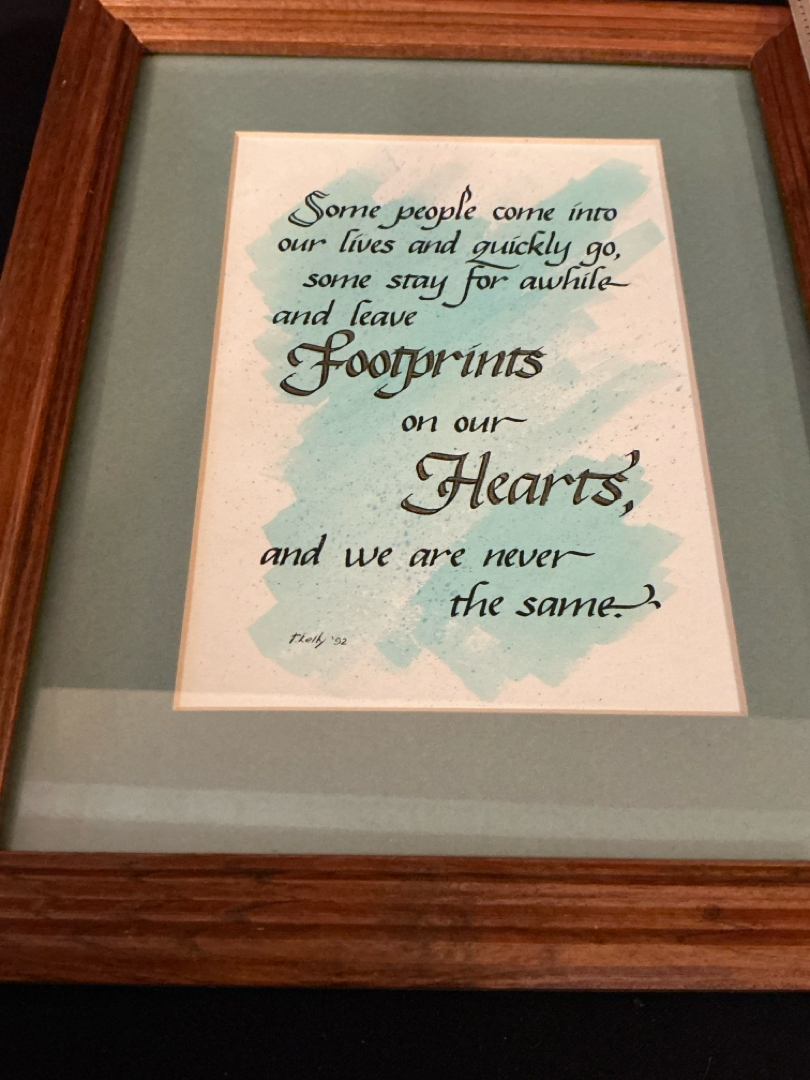 Some people come into
our lives and quickly go,
some stay for awhile
and leave
Footprints
on our
Hearts,
and we are never
the same.
'92